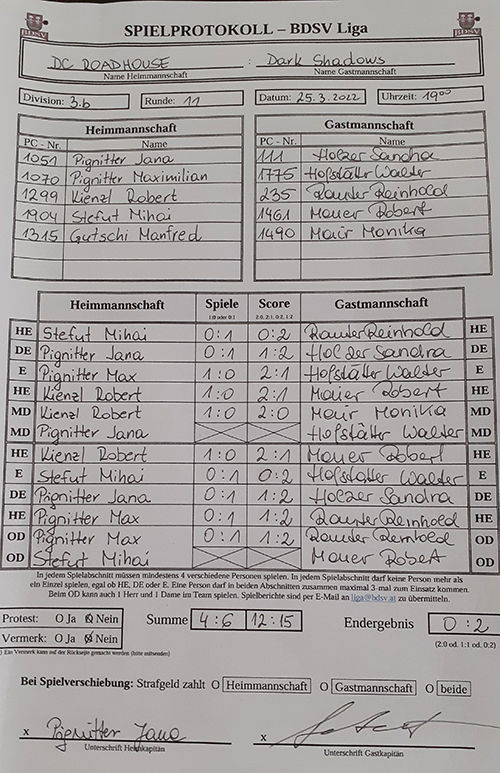 BDSV SPIELPROTOKOLL – BDSV Liga BDSV
DC ROADHOUSE : Dark Shadows
Name Heimmannschaft Name Gastmannschaft
Division: 3.b Runde: 11 Datum: 25.3.2022 Uhrzeit: 19°°
Heimmannschaft Gastmannschaft
PC - Nr. Name PC - Nr. Name
1051 Pignitter Jana 111 Holzer Sandra
1070 Pignitter Maximilian 1775 Hofstätter Walter
1299 Kienzl Robert 235 Rauter Reinhold
1904 Stefut Mihai 1461 Mauer Robert
1315 Gutschi Manfred 1490 Mair Monika
Heimmannschaft Spiele Score Gastmannschaft
1:0 oder 0:1 2:0, 2:1, 0:2, 1:2
HE Stefut Mihai 0:1 0:2 Rauter Reinhold HE
DE Pignitter Jana 0:1 1:2 Holzer Sandra DE
E Pignitter Max 1:0 2:1 Hofstätter Walter E
HE Kienzl Robert 1:0 2:1 Mauer Robert HE
MD Kienzl Robert 1:0 2:0 Mair Monika MD
MD Pignitter Jana Hofstätter Walter MD
HE Kienzl Robert 1:0 2:1 Mauer Robert HE
E Stefut Mihai 0:1 0:2 Hofstätter Walter E
DE Pignitter Jana 0:1 1:2 Holzer Sandra DE
HE Pignitter Max 0:1 1:2 Rauter Reinhold HE
OD Pignitter Max 0:1 1:2 Rauter Reinhold OD
OD Stefut Mihai Mauer Robert OD
In jedem Spielabschnitt müssen mindestens 4 verschiedene Personen spielen. In jedem Spielabschnitt darf keine Person mehr als
ein Einzel spielen, egal ob HE, DE oder E. Eine Person darf in beiden Abschnitten zusammen maximal 3-mal zum Einsatz kommen.
Beim OD kann auch 1 Herr und 1 Dame im Team spielen. Spielberichte sind per E-Mail an liga@bdsv.at zu übermitteln.
Protest: O Ja O Nein Summe 4:6 12:15 Endergebnis 0:2
Vermerk: O Ja O Nein (2:0 od. 1:1 od. 0:2)
) Ein Vermerk kann auf der Rückseite gemacht werden (bitte mitsenden)
Bei Spielverschiebung: Strafgeld zahlt O Heimmannschaft O Gastmannschaft O beide
x Pignitter Jana x
Unterschrift Heimkapitän Unterschrift Gastkapitän